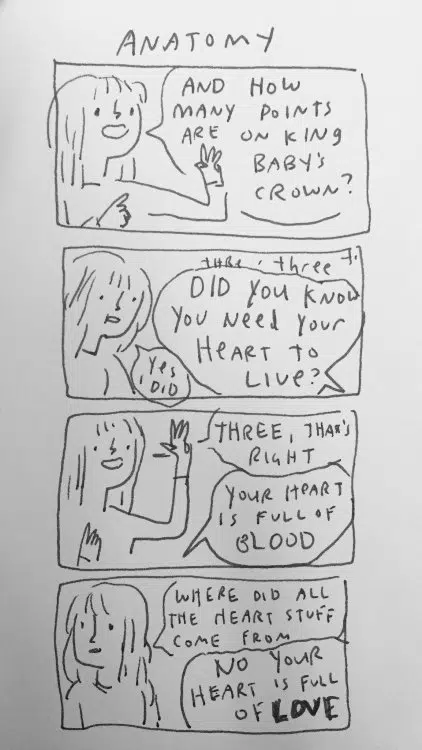 ANATOMY
AND HOW
MANY POINTS
ARE ON KING
BABY'S
CROWN?
three
DID YOU KNOW
YOU NEED YOUR
HEART TO
LIVE?
YES
I DID
THREE, THAT'S
RIGHT
YOUR HEART
IS FULL OF
BLOOD
WHERE DID ALL
THE HEART STUFF
COME FROM
NO YOUR
HEART IS FULL
OF LOVE